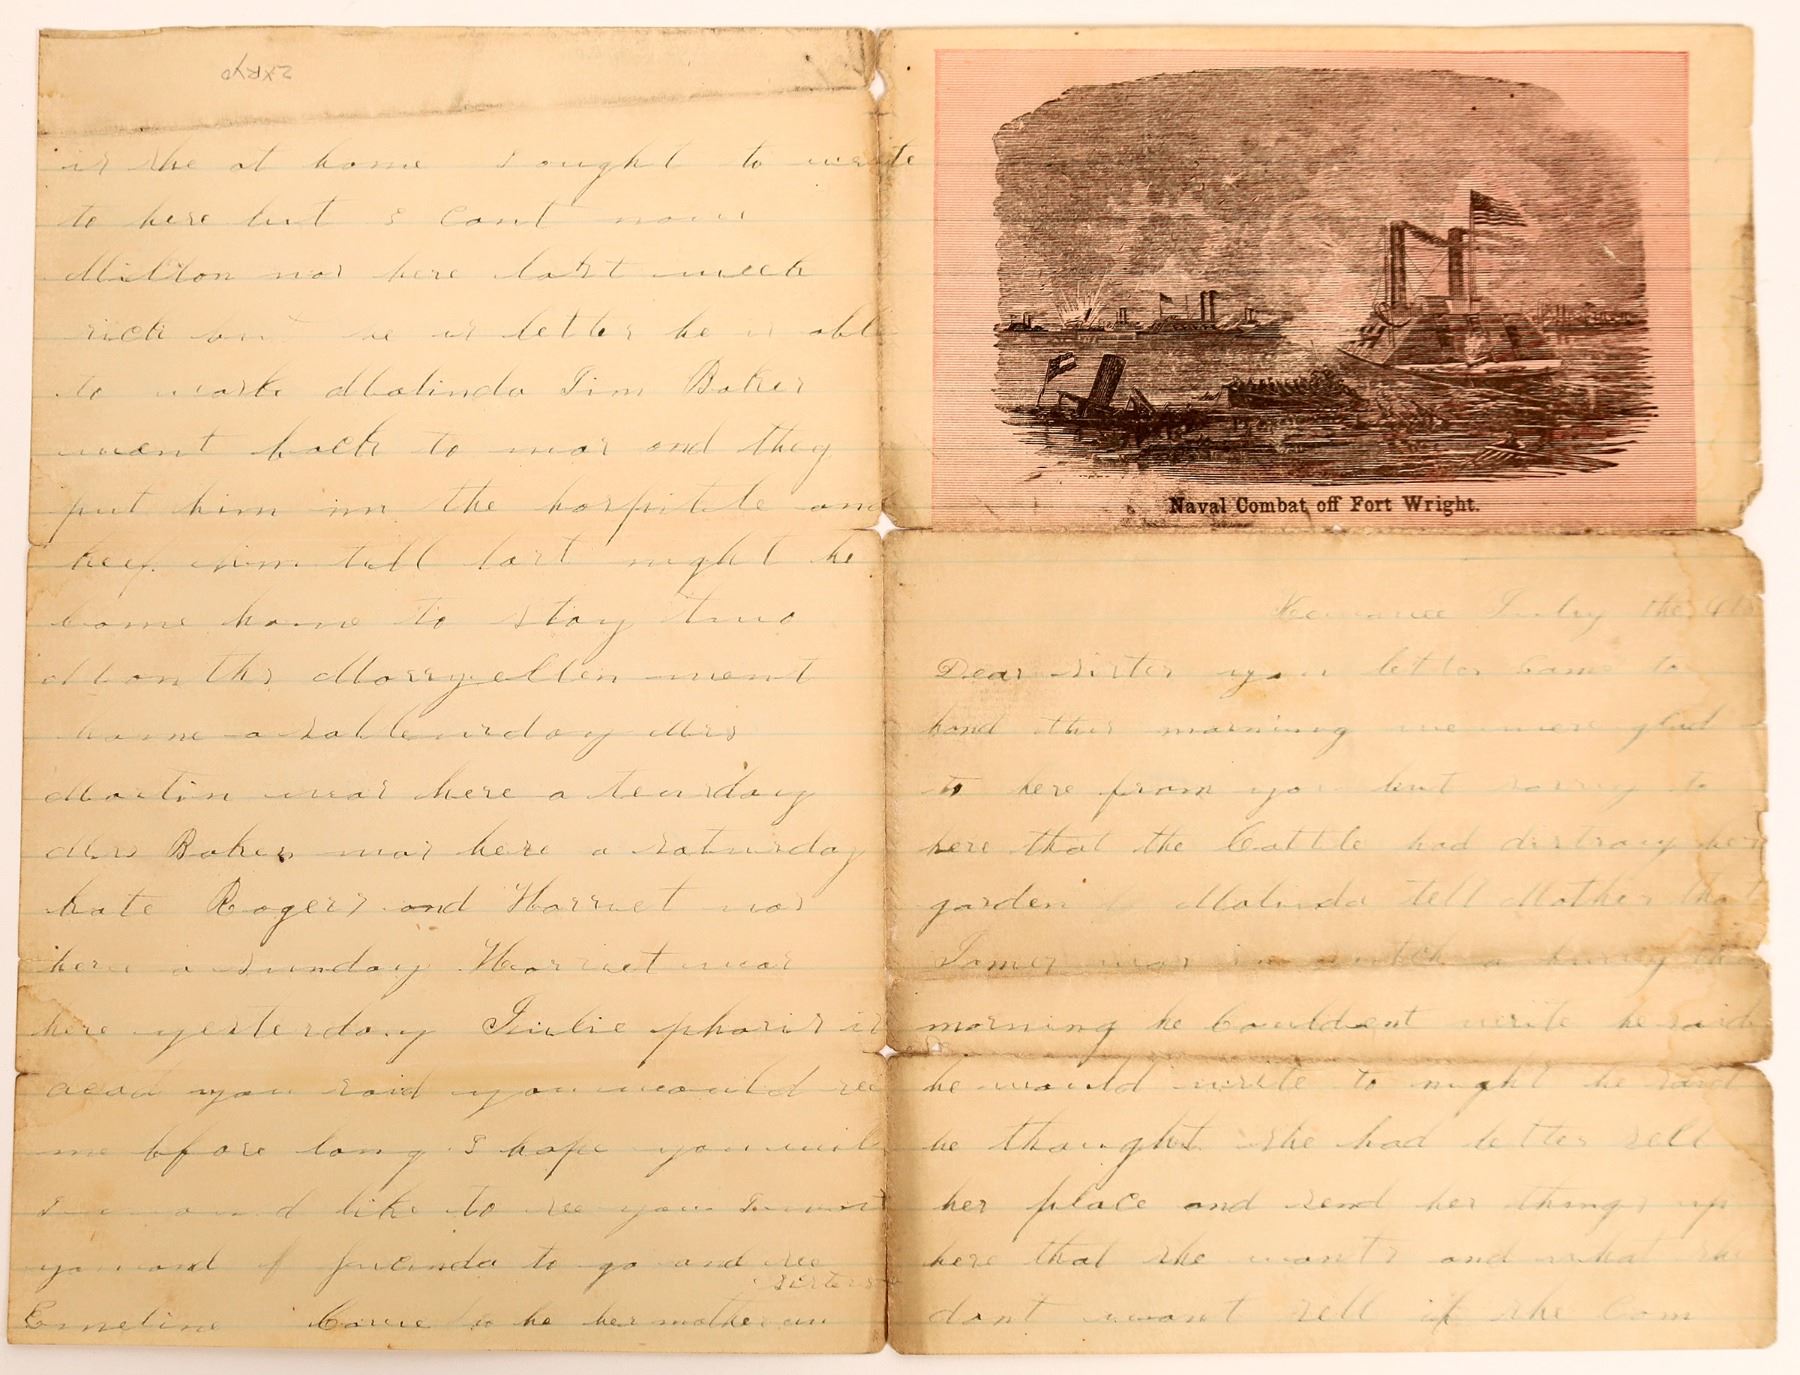 Naval Combat off Fort Wright.
Kewanee July the 9th
Dear sister you letter Came to
hand this morning we were glad
to here from you but sorry to
here that the Cattle had distrouy her
garden Malinda tell Mother that
James was in sutch a hurry this
morning he Couldent write he said
he would write to night he said
he thought she had better sell
her place and send her things up
here that she wants and what she
dont want sell if she Com
is she at home I ought to write
to here but I Cant now
Milton was here last week
sick but he is better he is able
to work Malinda Tim Baker
went back to war and they
put him inn the hospitle and
keep him till last night he
Came home to stay two
Months Marryellen went
home a satturday Mrs
Martin was here a teusday
Mrs Baker was here a saturday
kate Rogers and Harriet was
here a sunday Harriet was
here yesterday Julie pharis is
dead you said you would see
me bfore long I hope you will
I would like to see you I want
you and Jucinda to go and see
sister
Emeline Carrie to he her mother in